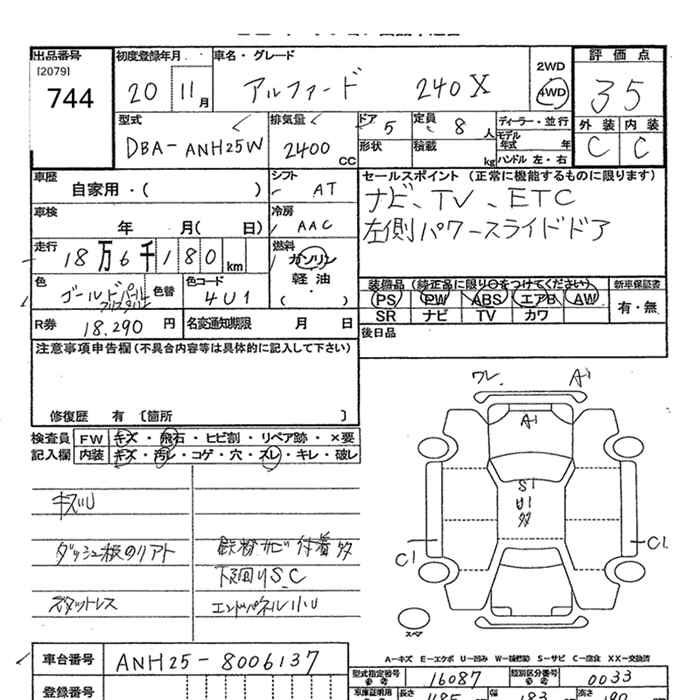 出品番号 初度登録年月 車名・グレード 2WD 評価点
[2079] 744 20 11月 アルファード 240X 4WD 35
型式 排気量 ドア 5 定員 8人 ディーラー・並行 外装 内装
DBA-ANH25W 2400CC 形状 積載 kg モデル年式 年 C C
ハンドル 左・右
車歴 シフト セールスポイント (正常に機能するものに限ります)
自家用・( ) AT ナビ、TV、ETC
車検 冷房 左側パワースライドドア
年 月( 日) AAC
走行 燃料
18万6千180km ガソリン
軽油
( ・ )
色 色替 色コード 装備品 (純正品に限り○をつけてください) 新車保証書
ゴールドパール 4U1 PS PW ABS エアB AW 有・無
クリスタル SR ナビ TV カワ
R券 18.290円 名変通知期限 月 日 後日品
注意事項申告欄(不具合内容等は具体的に記入して下さい)
修復歴 有 〔箇所 〕
検査員 FW キズ・飛石・ヒビ割・リペア跡・×要
記入欄 内装 キズ・汚レ・コゲ・穴・スレ・キレ・破レ
ワレ. A1
A1
S1
U1
多
C1 C1
スペア
キズU
ダッシュ板のリアト 鉄粉サビ付着多
下回りS.C
スタットレス エンドパネル小U
A-キズ E-エクボ U-凹み W-補修跡 S-サビ C-腐食 XX-交換済
車台番号 ANH25-8006137 型式指定番号 参考 16087 類別区分番号 参考 0033
登録番号 車庫証明用 長さ 485 幅 183 高さ 190